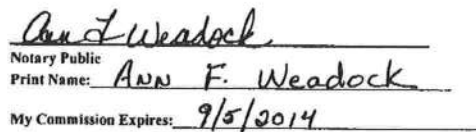 Ann F Weadock
Notary Public
Print Name: ANN F. Weadock
My Commission Expires: 9/5/2014